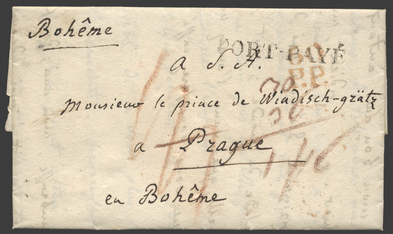 Bohême
PORT-PAYÉ
P.P.
A S. A.
Monsieur le prince de Windisch-grätz
a Prague
en Bohême